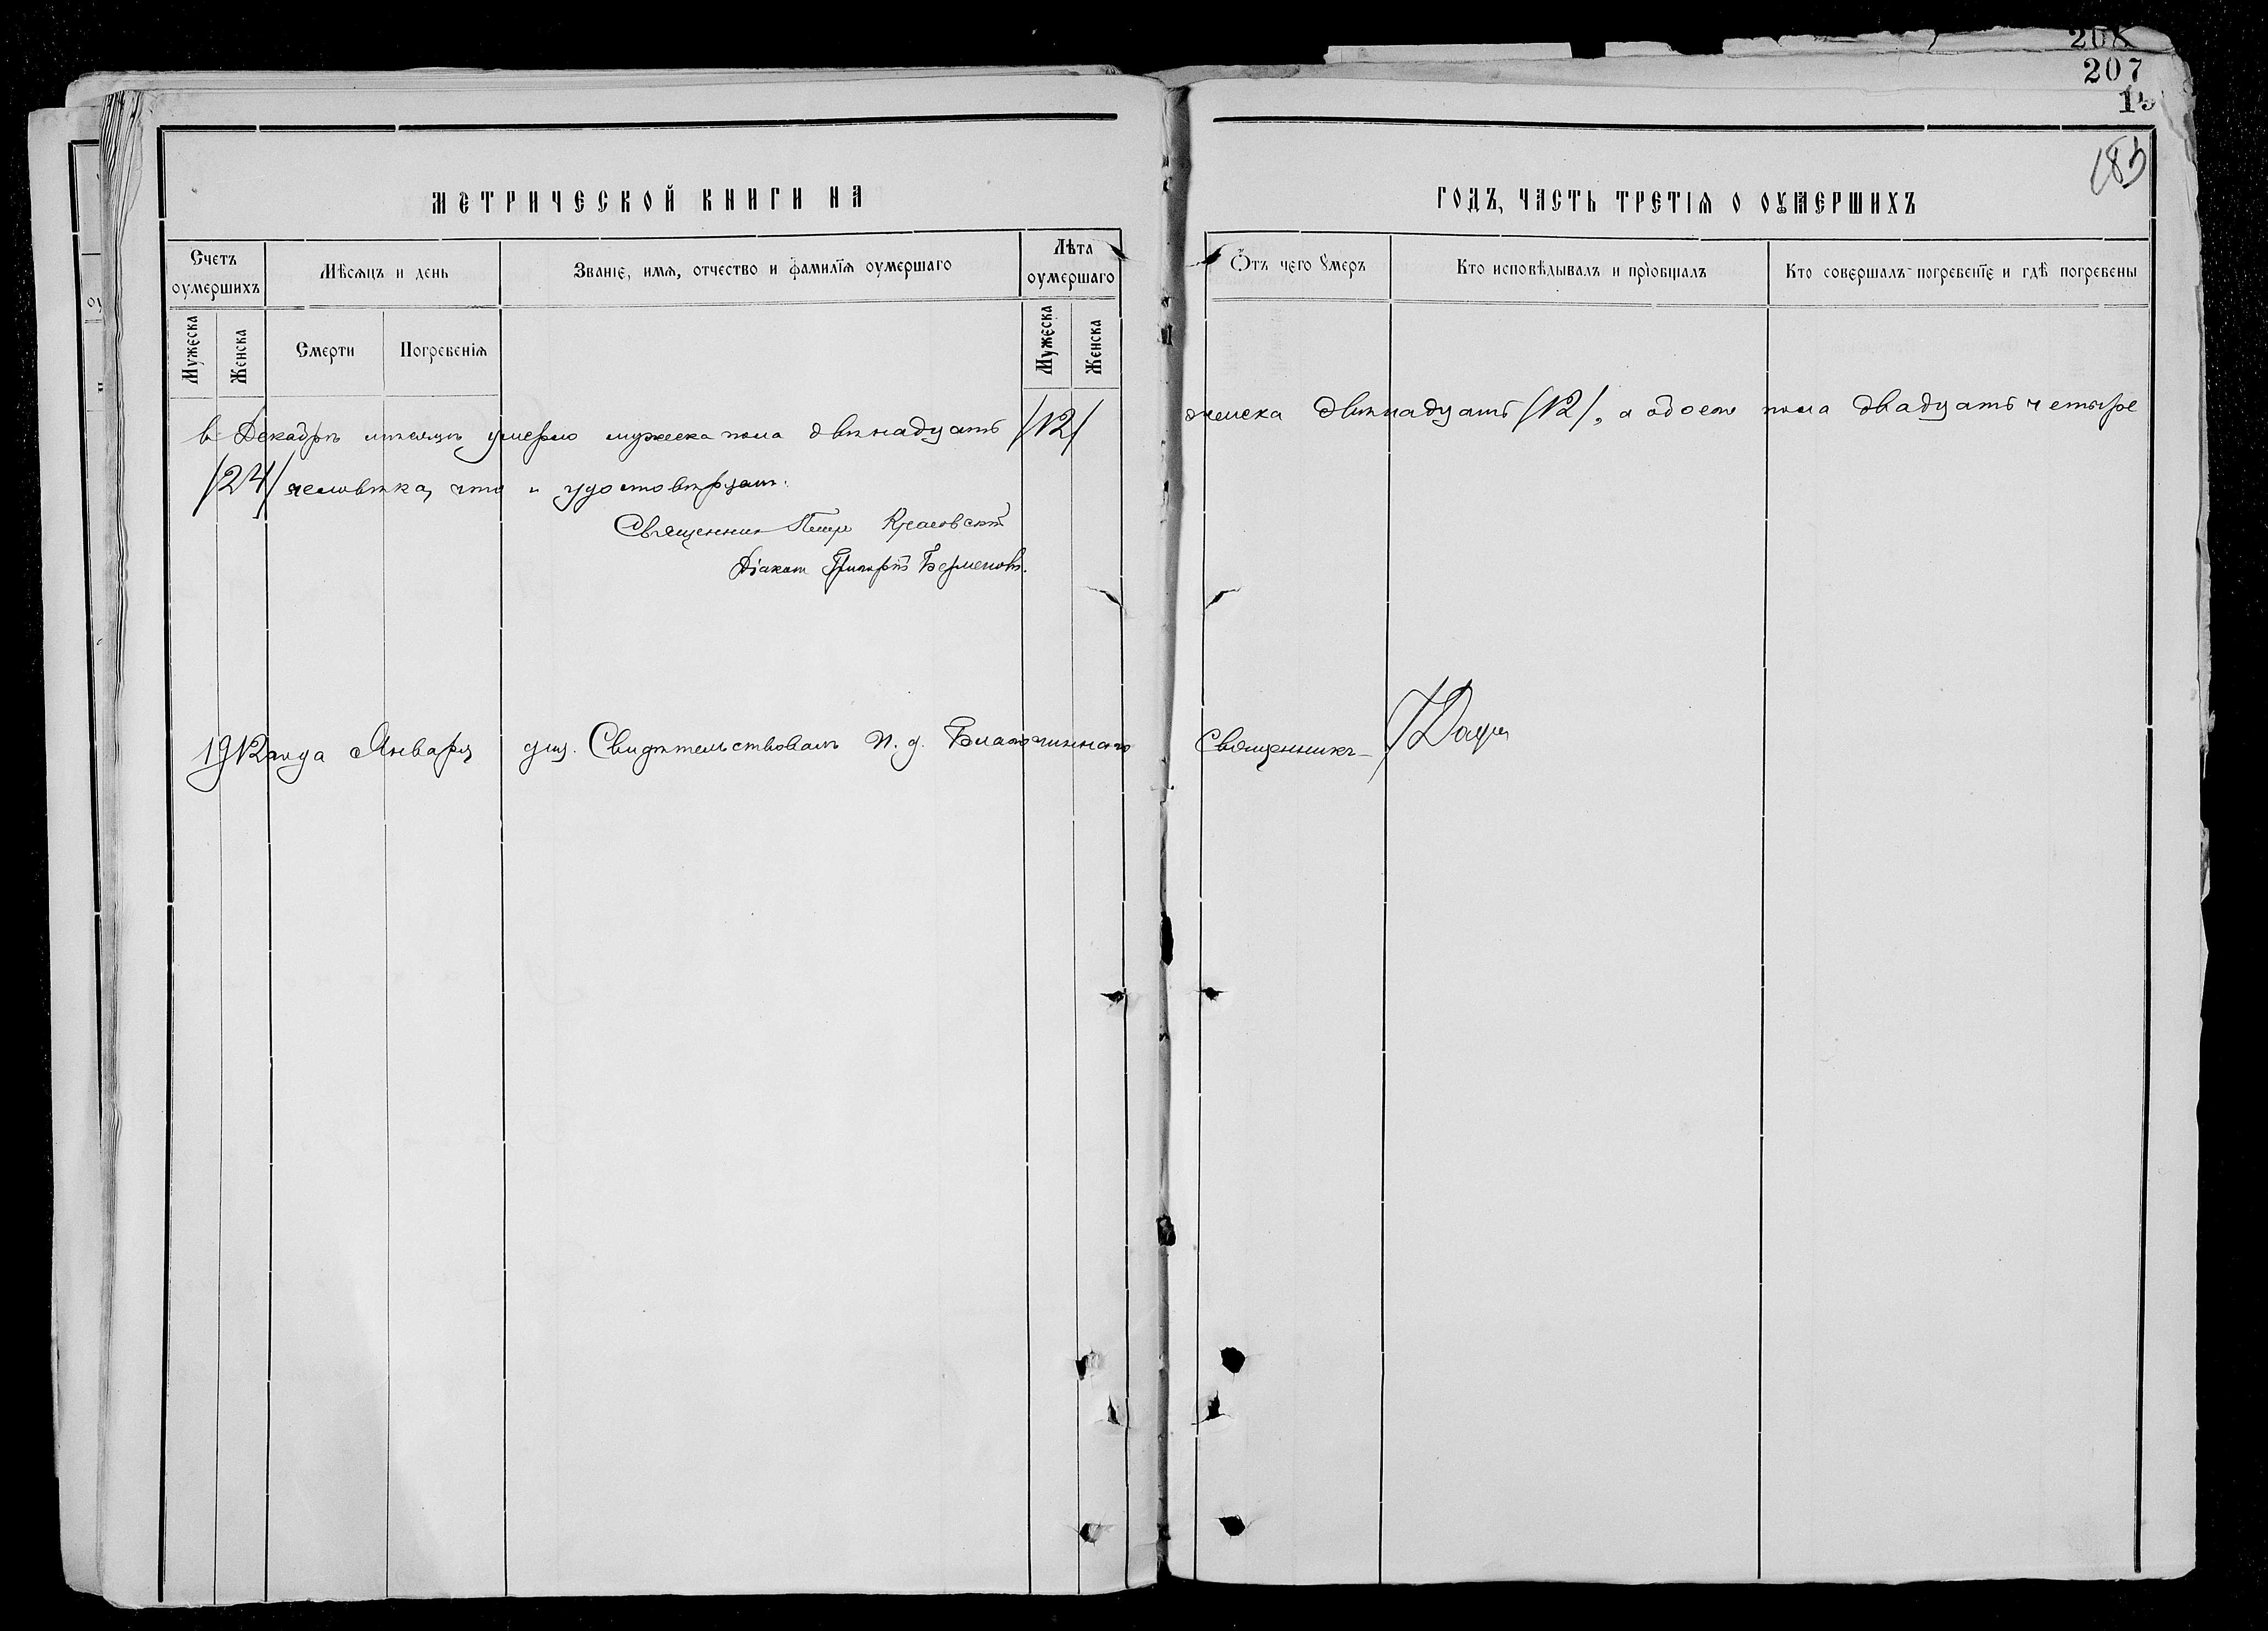 208
207
15
183
МЕТРИЧЕСКОЙ КНИГИ НА
ГОДЪ, ЧАСТЬ ТРЕТІѦ О ОУМЕРШИХЪ
Счетъ оумершихъ
Мѣсѧцъ и день
Званіе, имѧ, отчество и фамиліѧ оумершаго
Лѣта оумершаго
Ѿтъ чего Ꙋмеръ
Кто исповѣдывалъ и пріобщалъ
Кто совершалъ погребеніе и гдѣ погребены
Мужеска
Женска
Смерти
Погребеніѧ
Мужеска
Женска
въ Декабрѣ мѣсяцѣ умерло мужеска пола двѣнадцать /12/ женска двѣнадцать /12/, а обоего пола двадцать четыре
/24/ человѣка, что и удостовѣряемъ.
Священникъ Петръ
Діаконъ Григорій
1912 года Января дня. Свидѣтельствовалъ И. д. Благочиннаго Священникъ